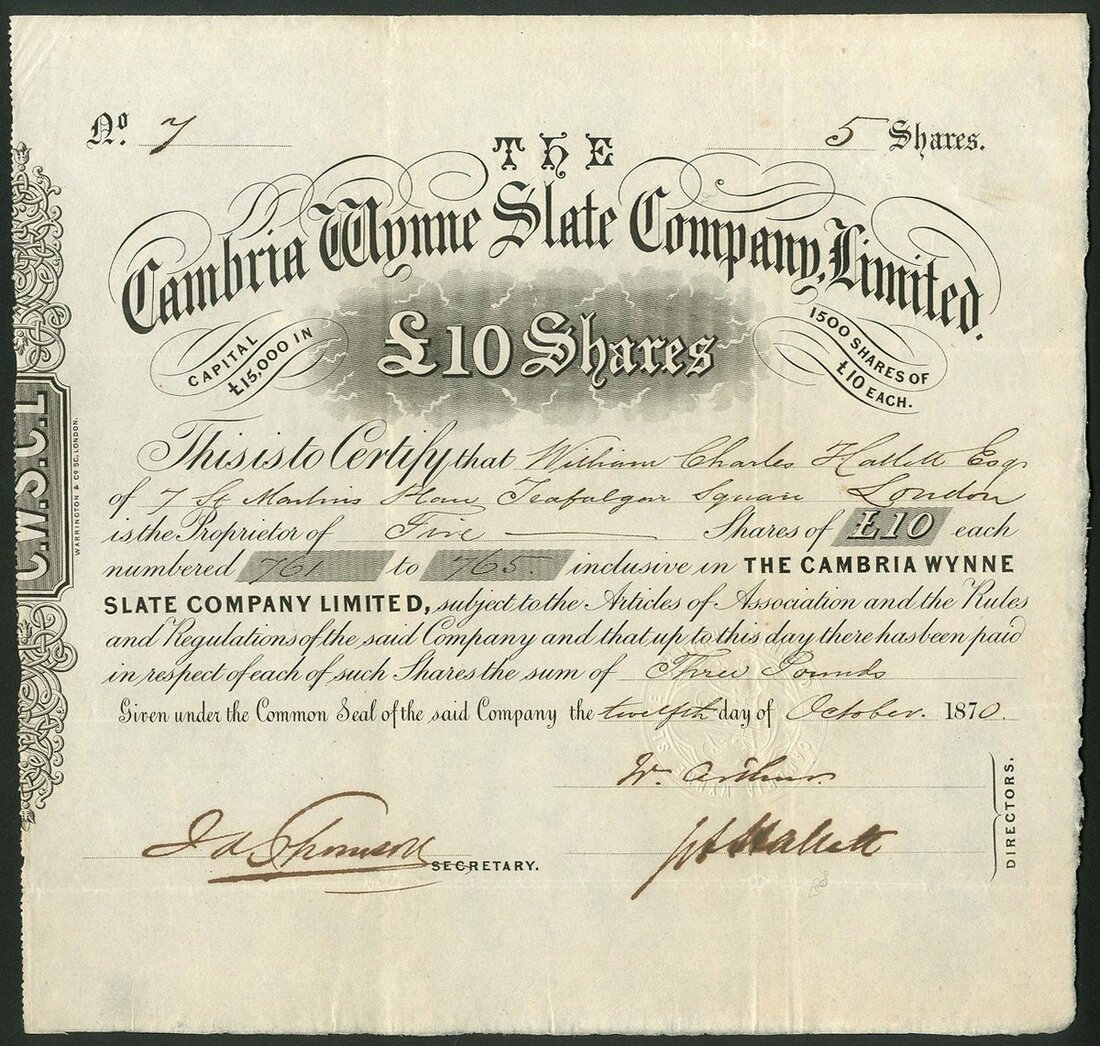 No. 7
5 Shares.
THE
Cambria Wynne Slate Company, Limited.
CAPITAL £15,000 IN
£10 Shares
1500 SHARES OF £10 EACH.
This is to Certify that William Charles Hallett Esqr
of 7 St Martins Place Trafalgar Square London
is the Proprietor of Five Shares of £10 each
numbered 761 to 765 inclusive in THE CAMBRIA WYNNE
SLATE COMPANY LIMITED, subject to the Articles of Association and the Rules
and Regulations of the said Company and that up to this day there has been paid
in respect of each of such Shares the sum of Three Pounds
Given under the Common Seal of the said Company the twelfth day of October. 1870.
W. Arthur
Hallett
DIRECTORS.
Thomson
SECRETARY.
C.W.S.C.L
WARRINGTON & CO. SC. LONDON.